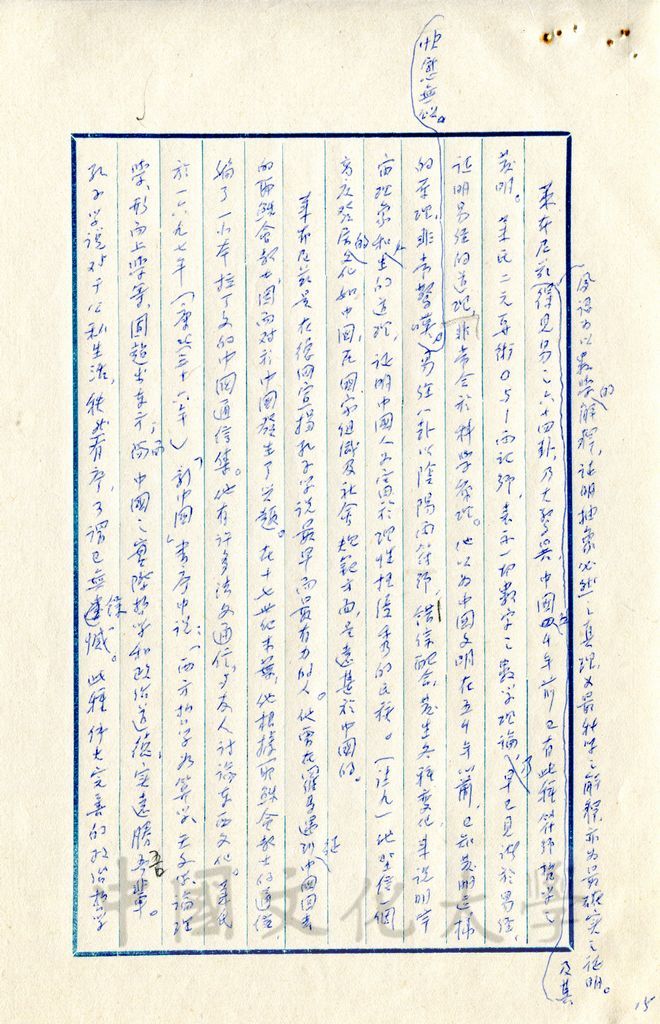 萊布尼茲得見易之六十四卦，乃大驚異中國五千年前已有此種符號哲學之
發明。萊氏二元算術0與1兩記號，表示一切數字之數學理論，早已見諸於易經，
証明易經的道理，非常合於科學原理。他以為中國文明在五千年以前，已知發明這樣
的原理，非常驚嘆。易經八卦以陰陽兩符號，錯綜配合，發生各種變化，來說明宇
宙現象和人生的道理，証明中國人是富於理性極優秀的民族。（註九）比整個
高度發展的文化如中國，在國家組織及社會規範方面，是遠甚於中國的。
萊布尼茲是在德國宣揚孔子學說最早而最有力的人。他曾在羅馬遇到中國回去
的耶穌會教士，因而對於中國發生了興趣。在十七世紀末葉，他根據耶穌會教士的通信，
編了一小本拉丁文的中國通信集。他有許多法文通信，與友人討論東西文化。萊氏
於一六九七年（康熙三十六年）「新中國」書序中說：「西方哲學為算學、天文、論理
學、形而上學等，固超出東方；而中國之實際哲學和政治道德，實遠勝吾輩。
孔子學說對于公私生活，秩然有序，可謂已無遺憾。此種偉大完善的政治哲學
的
解釋，証明抽象必然之真理，又最科學之解釋，亦為最確實之証明。
及其
15
中國文化大學